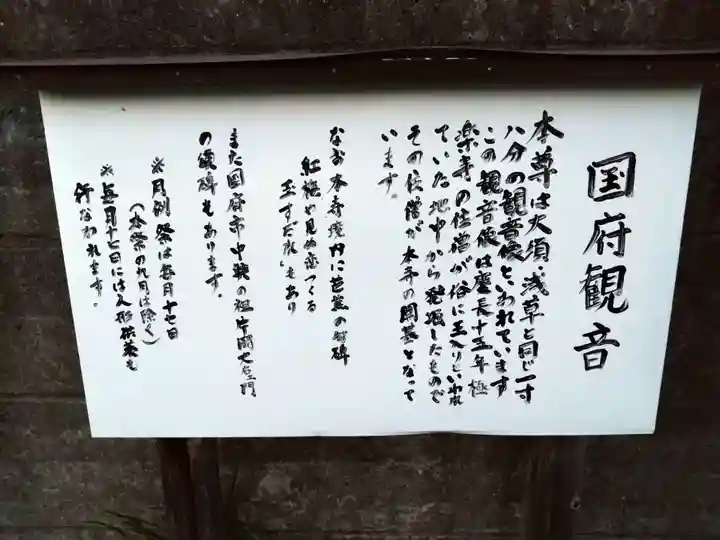 国府観音
本尊は大須、浅草と同じ一寸
八分の観音像といわれています
この観音像は慶長十五年極
楽寺の住僧が俗に玉入りといわれ
ていた地中から発掘したもので
その住僧が本寺の開基となって
います。
なお本寺境内に芭蕉の句碑
紅梅や見ぬ恋つくる
玉すだれ もあり
また国府市中興の祖片岡七左エ門
の頌碑もあります。
※月例祭は毎月十七日
(本祭の九月は除く)
※毎月十七日には人形供養も
行なわれます。